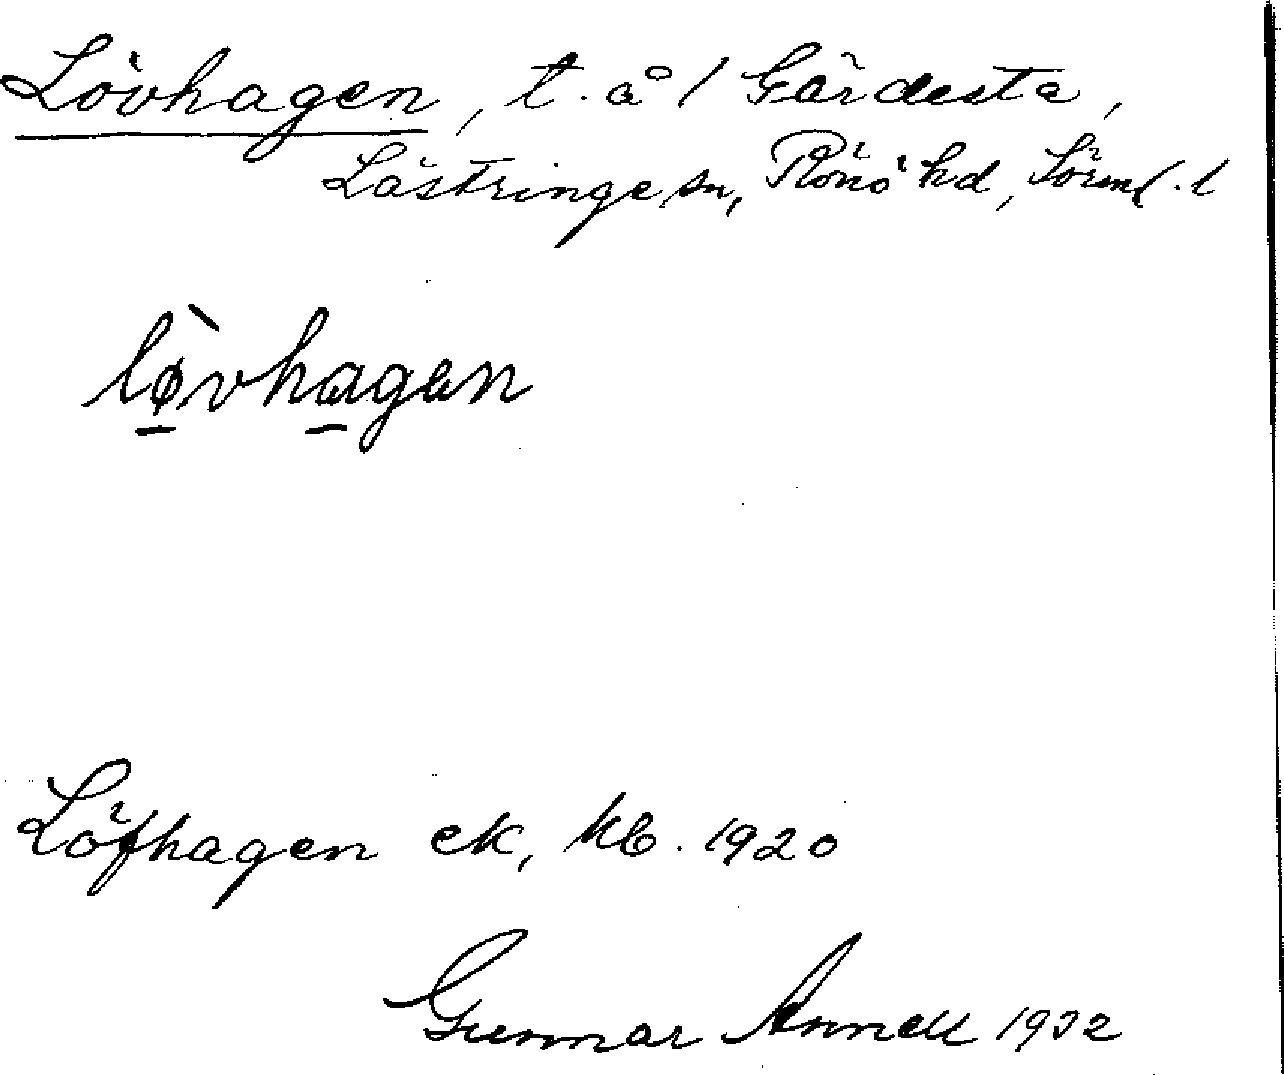 Lövhagen, t. å / Gärdesta,
Lästringe sn, Rönö hd, Sörml. l
lø̀vhagən
Löfhagen ek, kb. 1920
Gunnar Annell 1932